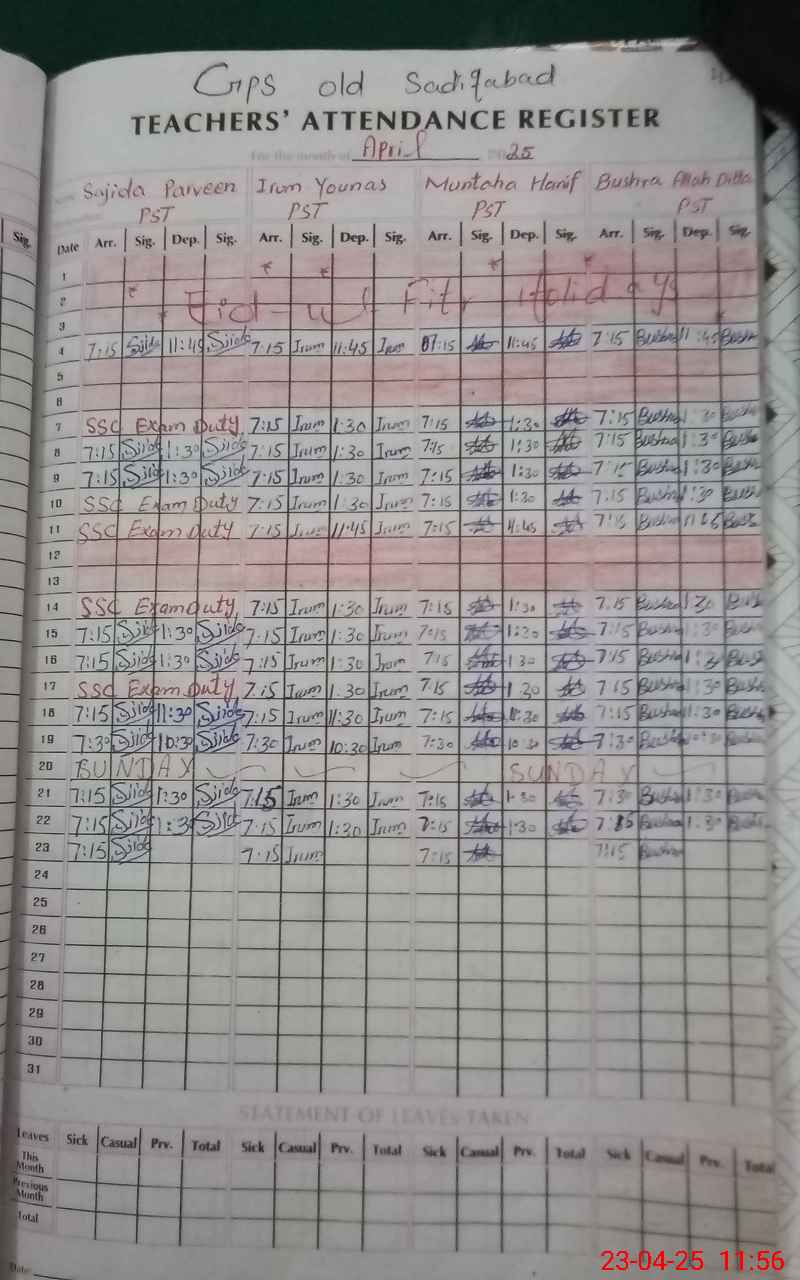 GPS old Sadiqabad
TEACHERS' ATTENDANCE REGISTER
For the month of April 2025
Sajida Parveen Irum Younas Muntaha Hanif Bushra Allah Ditta
PST PST PST PST
Sig.
Date Arr. Sig. Dep. Sig. Arr. Sig. Dep. Sig. Arr. Sig. Dep. Sig. Arr. Sig. Dep. Sig.
1
2 Eid-ul Fitr Holidays
3
4 7:15 11:45 7:15 Irum 11:45 Irum 07:15 11:45 7:15 Bushra 11:45 Bushra
5
6
7 SSC Exam Duty 7:15 Irum 1:30 Irum 7:15 1:30 7:15 Bushra 1:30 Bushra
8 7:15 1:30 7:15 Irum 1:30 Irum 7:15 1:30 7:15 Bushra 1:30 Bushra
9 7:15 1:30 7:15 Irum 1:30 Irum 7:15 1:30 7:15 Bushra 1:30 Bushra
10 SSC Exam Duty 7:15 Irum 1:30 Irum 7:15 1:30 7:15 Bushra 1:30 Bushra
11 SSC Exam Duty 7:15 Irum 11:45 Irum 7:15 11:45 7:15 Bushra
12
13
14 SSC Exam Duty 7:15 Irum 1:30 Irum 7:15 1:30 7:15 Bushra 1:30
15 7:15 1:30 7:15 Irum 1:30 Irum 7:15 1:30 7:15 Bushra 1:30
16 7:15 1:30 7:15 Irum 1:30 Irum 7:15 1:30 7:15 Bushra
17 SSC Exam Duty 7:15 Irum 1:30 Irum 7:15 1:30 7:15 Bushra 1:30
18 7:15 11:30 7:15 Irum 11:30 Irum 7:15 11:30 7:15 Bushra 11:30
19 7:30 10:30 7:30 Irum 10:30 Irum 7:30 10:30 7:30 Bushra 10:30
20 SUNDAY SUNDAY
21 7:15 1:30 7:15 Irum 1:30 Irum 7:15 1:30 7:30 Bushra 1:30
22 7:15 1:30 7:15 Irum 1:30 Irum 7:15 1:30 7:15 Bushra 1:30
23 7:15 7:15 Irum 7:15 7:15 Bushra
24
25
26
27
28
29
30
31
STATEMENT OF LEAVES TAKEN
Leaves Sick Casual Prv. Total Sick Casual Prv. Total Sick Casual Prv. Total Sick Casual Prv. Total
This Month
Previous Month
Total
Date
23-04-25 11:56